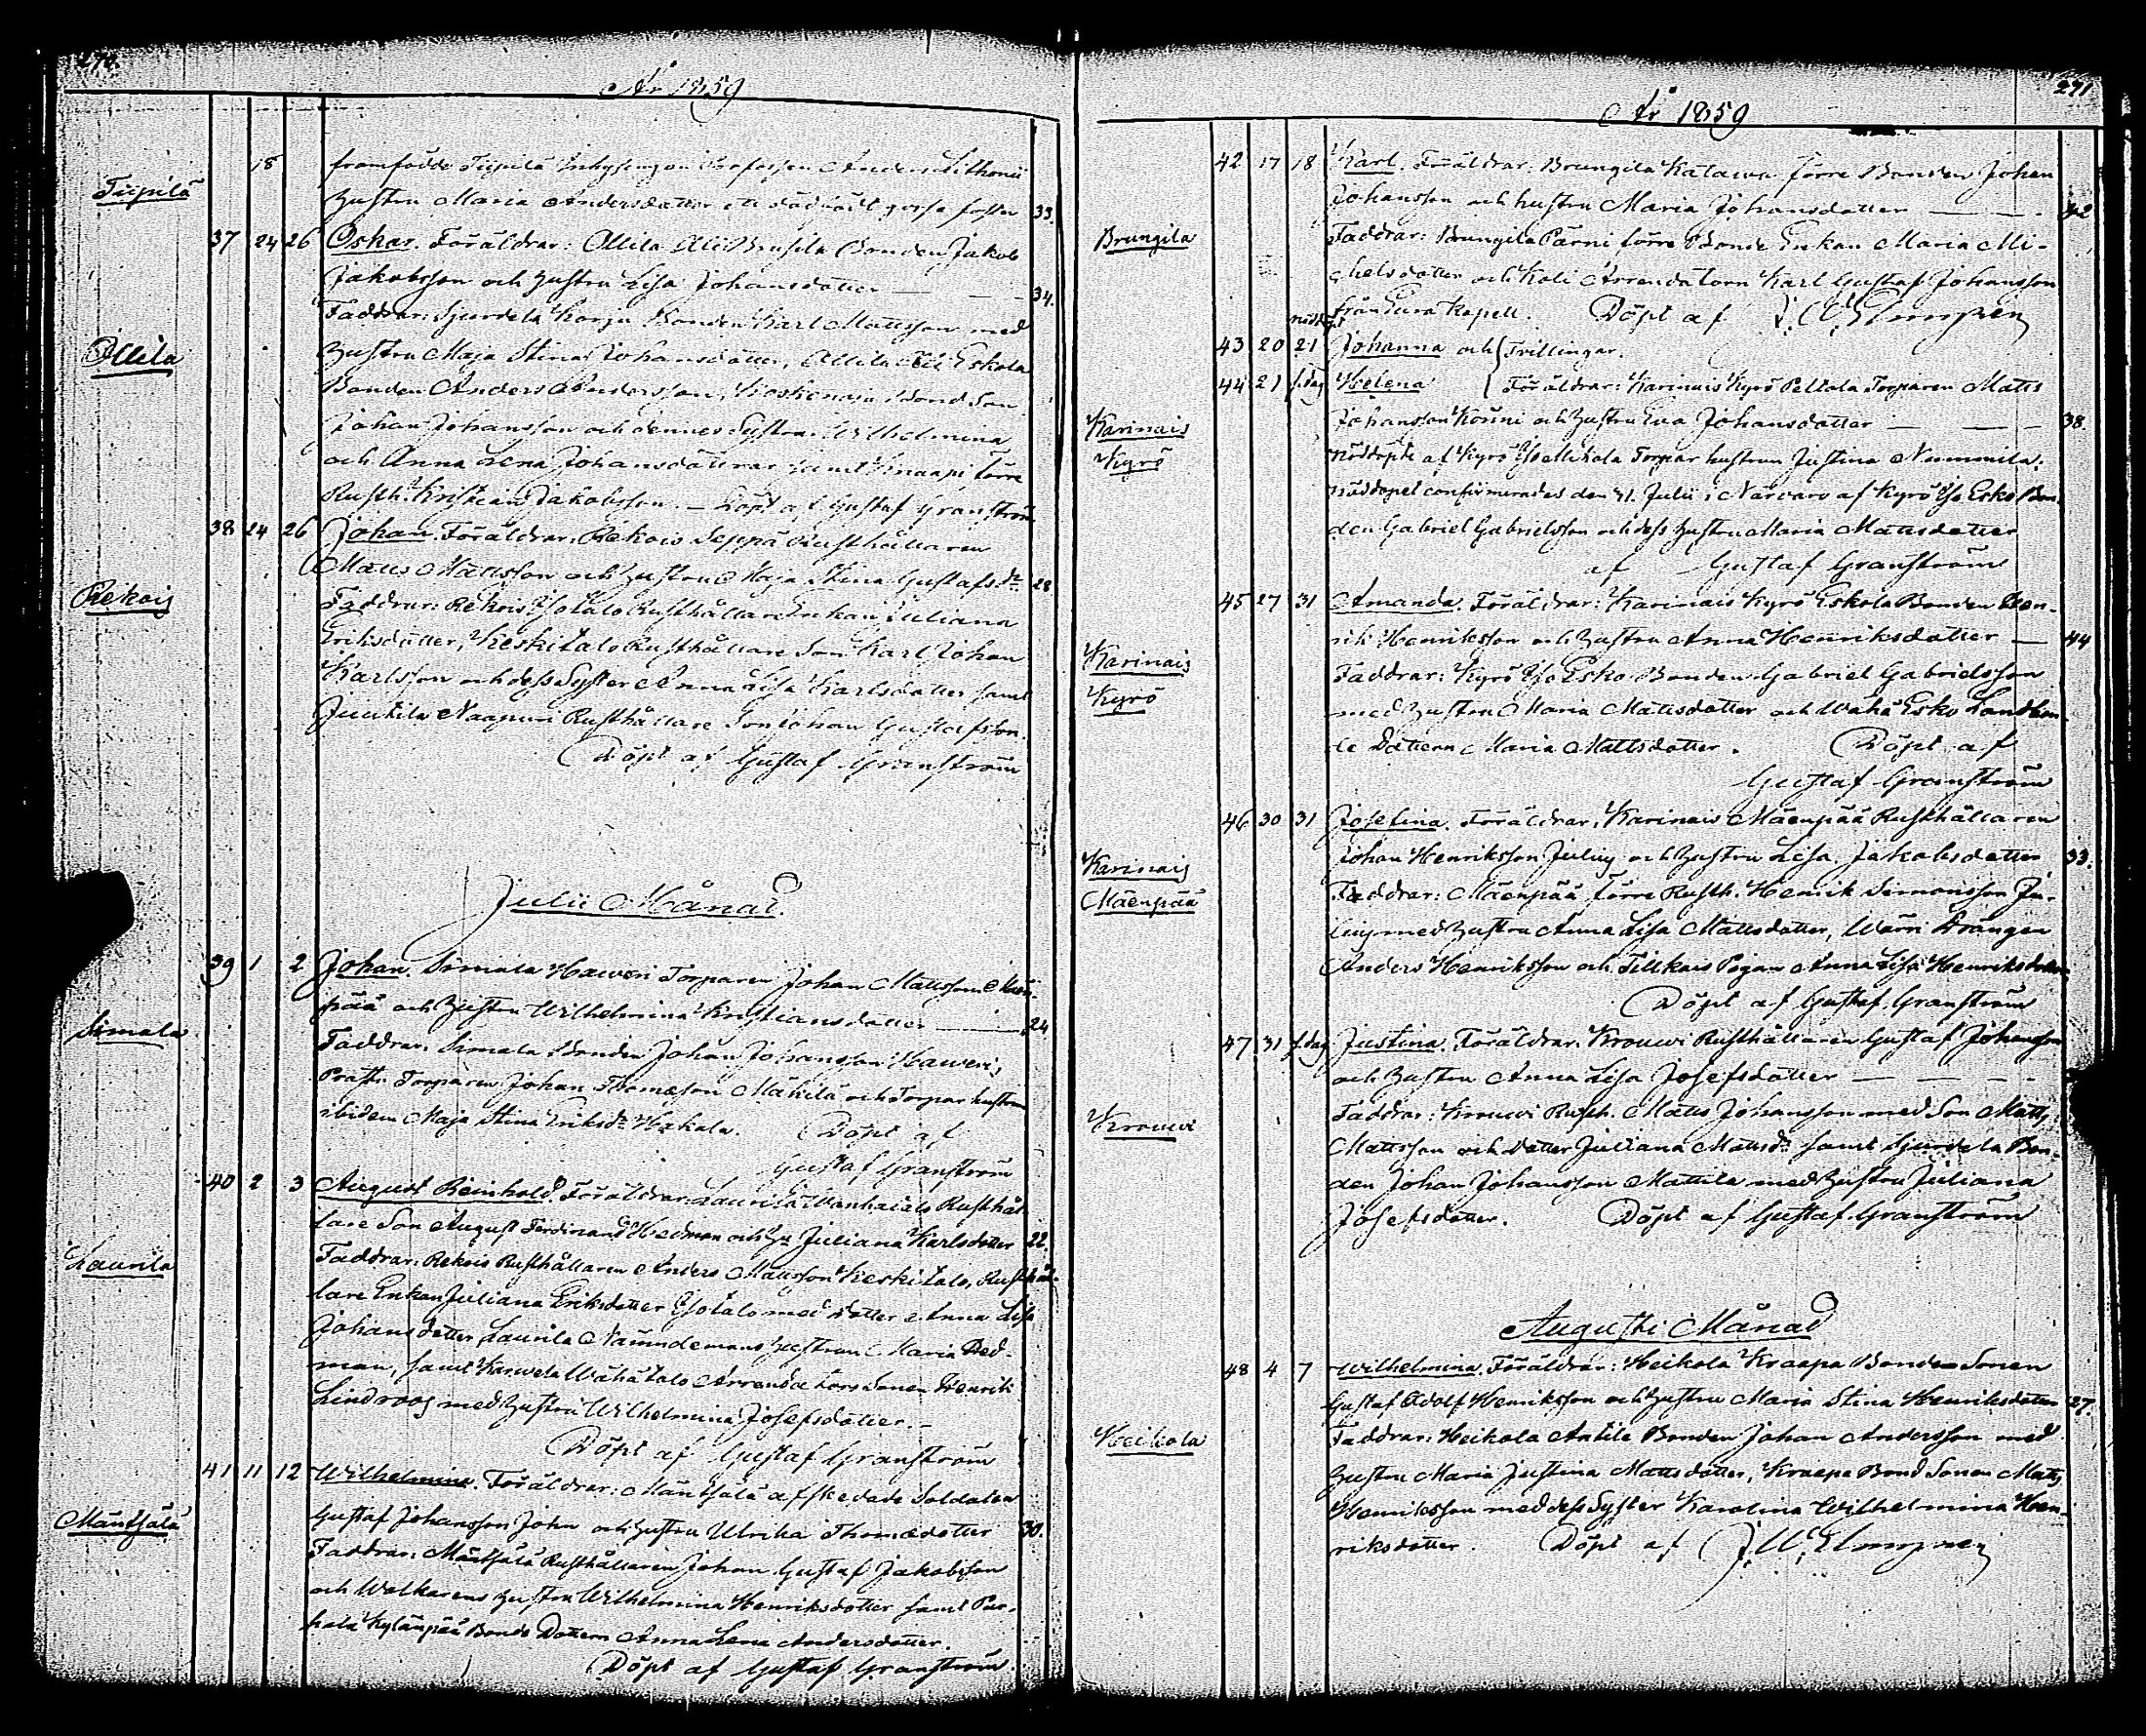 270.
År 1859
18 framfödde Tiipilä Anders
Tiipilä
hustru Maria Andersdotter ett dödfödt gosse foster 33.
37 24 26 Oskar. Föräldrar: Ollila Bonden Jakob
Jakobsson och hustru Lisa Johansdotter — — 34.
Faddrar: Sjurdela Bonden Karl Mattsson med
Ollila
hustru Maja Stina Johansdotter, Ollila Eskola
Bonden Anders Andersson, Bond Son
Johan Johansson och dennes Systrar Wilhelmina
och Anna Lena Johansdöttrar samt Knaapi förre
Rusth. Kristian Jakobsson. — Döpt af Gustaf Granström
38 24 26 Johan. Föräldrar: Rekois Seppä Rusthållaren
Matts Mattsson och hustru Maja Stina Gustafsdr 28
Rekois
Faddrar: Rekois Isotalo Rusthållare Enkan Juliana
Eriksdotter, Keskitalo Rusthållare Son Karl Johan
Karlsson och dess Syster Anna Lisa Karlsdotter samt
Juntila Naapuri Rusthållare Son Johan Gustafsson.
Döpt af Gustaf Granström
Julii Månad.
39 1 2 Johan. Simala Haweri Torparen Johan Mattsson Mäen-
pää och hustru Wilhelmina Kristiansdotter — 24
Simala
Faddrar: Simala Bonden Johan Johansson Haweri,
Prästr. Torparen Johan Thomæson Mäkilä och Torpar hustrun
ibidem Maja Stina Eriksdr Hakala. Döpt af
Gustaf Granström
40 2 3 August Reinhold. Föräldrar: Laurila Wanhatalo Rusthål-
lare Son August Ferdinand Hedman och Hu Juliana Karlsdotter 22.
Laurila
Faddrar: Rekois Rusthållaren Anders Mattsson Keskitalo, Rusthål-
lare Enkan Juliana Eriksdotter Isotalo med dotter Anna Lisa
Johansdotter, Laurila Nämndemans hustrun Maria Hed-
man, samt Karwela Wähätalo Arrendators Sonen Henrik
Lindroos med hustru Wilhelmina Josefsdotter. —
Döpt af Gustaf Granström
41 11 12 Wilhelmina. Föräldrar: Mäntsälä afskedade Soldaten
Gustaf Johansson John och hustru Ulrika Thomædotter 30.
Mäntsälä
Faddrar: Mäntsälä Rusthållaren Johan Gustaf Jakobsson
och Wolkarens hustru Wilhelmina Henriksdotter samt Pur-
hala Kylänpää Bonde Dottern Anna Lena Andersdotter.
Döpt af Gustaf Granström
271
År 1859
42 17 18 Karl. Föräldrar: Brungila Katawa förre Bonden Johan
Johansson och hustru Maria Johansdotter — — 42
Brungila
Faddrar: Brungila Pärni förre Bonde Enkan Maria Mi-
chelsdotter och Koli Arrendatorn Karl Gustaf Johansson
från Eura Kapell. Döpt af
43 20 21 Johanna och Trillingar.
44 21 s.dag Helena Föräldrar: Karinais Kyrö Peltola Torparen Matts
Karinais
Kyrö
Johansson och hustru Eva Johansdotter — — 38.
nöddöpte af Kyrö Torpar hustrun Justina Nummila:
nöddopet confirmerades den 21. Julii i Närvaro af Kyrö Iso Esko Bon-
den Gabriel Gabrielsson och dess hustru Maria Mattsdotter
af Gustaf Granström
45 27 31 Amanda. Föräldrar: Karinais Kyrö Eskola Bonden Hen-
rik Henriksson och hustru Anna Henriksdotter — 44
Karinais
Kyrö
Faddrar: Kyrö Iso Esko Bonden Gabriel Gabrielsson
med hustru Maria Mattsdotter och Wähä Esko Landbon-
de Dottern Maria Mattsdotter. Döpt af
Gustaf Granström
46 30 31 Josefina. Föräldrar: Karinais Mäenpää Rusthållaren
Johan Henriksson Julius och hustru Lisa Jakobsdotter 33.
Karinais
Mäenpää
Faddrar: Mäenpää förre Rusth. Henrik Simonsson Ju-
lius med hustru Anna Lisa Mattsdotter, Wärri Drängen
Anders Henriksson och Tillkais Pigan Anna Lisa Henriksdotter
Döpt af Gustaf Granström
47 31 s.dag Justina. Föräldrar: Krouwi Rusthållaren Gustaf Johansson
och hustru Anna Lisa Josefsdotter — — —
Krouwi
Faddrar: Krouwi Rusth. Matts Johansson med Son Matts
Mattsson och dotter Juliana Mattsdr samt Sjurdela Bon-
den Johan Johansson Mattila med hustru Juliana
Josefsdotter. Döpt af Gustaf Granström
Augusti Månad
48 4 7 Wilhelmina. Föräldrar: Heikola Kraapa Bonden Sonen
Gustaf Adolf Henriksson och hustru Maria Stina Henriksdotter 27.
Heikola
Faddrar: Heikola Antila Bonden Johan Andersson med
hustru Maria Justina Mattsdotter, Kraapa Bond Sonen Matts
Henriksson med dess Syster Karolina Wilhelmina Hen-
riksdotter. Döpt af